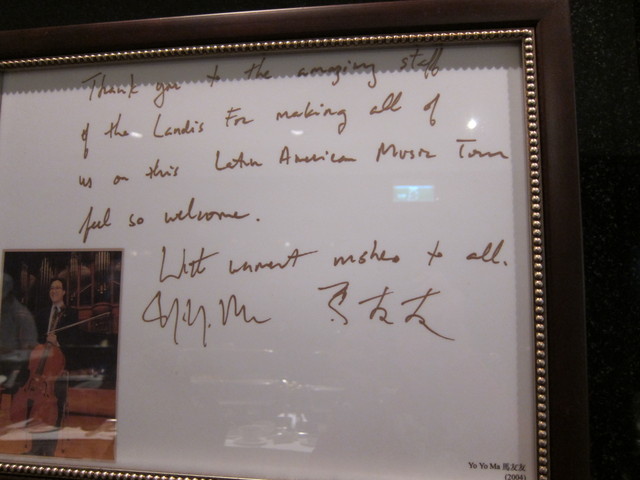 Thank you to the amazing staff
of the Landis For making all of
us on this Latin American Music Tour
feel so welcome.
With warmest wishes to all.
Yo-Yo Ma 馬友友
Yo Yo Ma 馬友友
(2004)